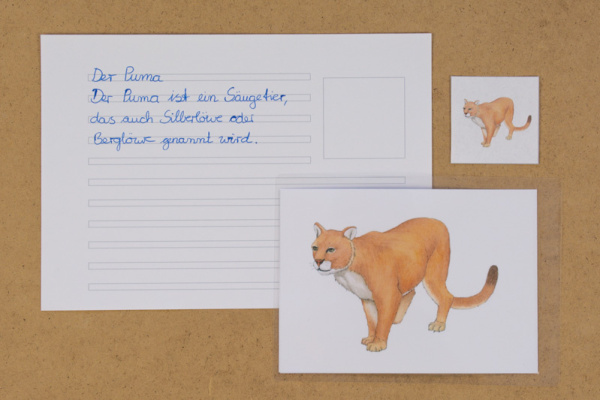 Der Puma
Der Puma ist ein Säugetier,
das auch Silberlöwe oder
Berglöwe genannt wird.